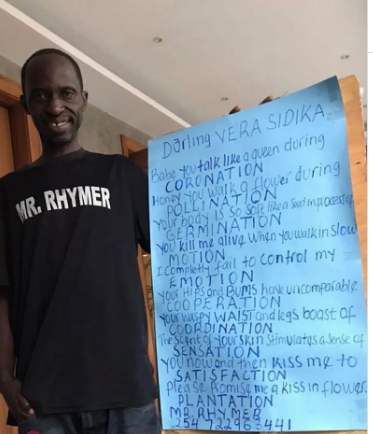 MR. RHYMER
Darling VERA SIDIKA
Babe you talk like a queen during
CORONATION
Honey you walk a flower during
POLLINATION
Your body is so soft like a seed in process of
GERMINATION
You kill me alive when you walk in slow
MOTION
I completly fail to control my
EMOTION
your Hips and BUMS have uncomparable
COOPERATION
Your waspy WAIST and legs boast of
COORDINATION
The scent of your skin stimulates a sense of
SENSATION
you now and then kiss me to
SATISFACTION
Please promise me a kiss in flower
PLANTATION
MR. RHYMER